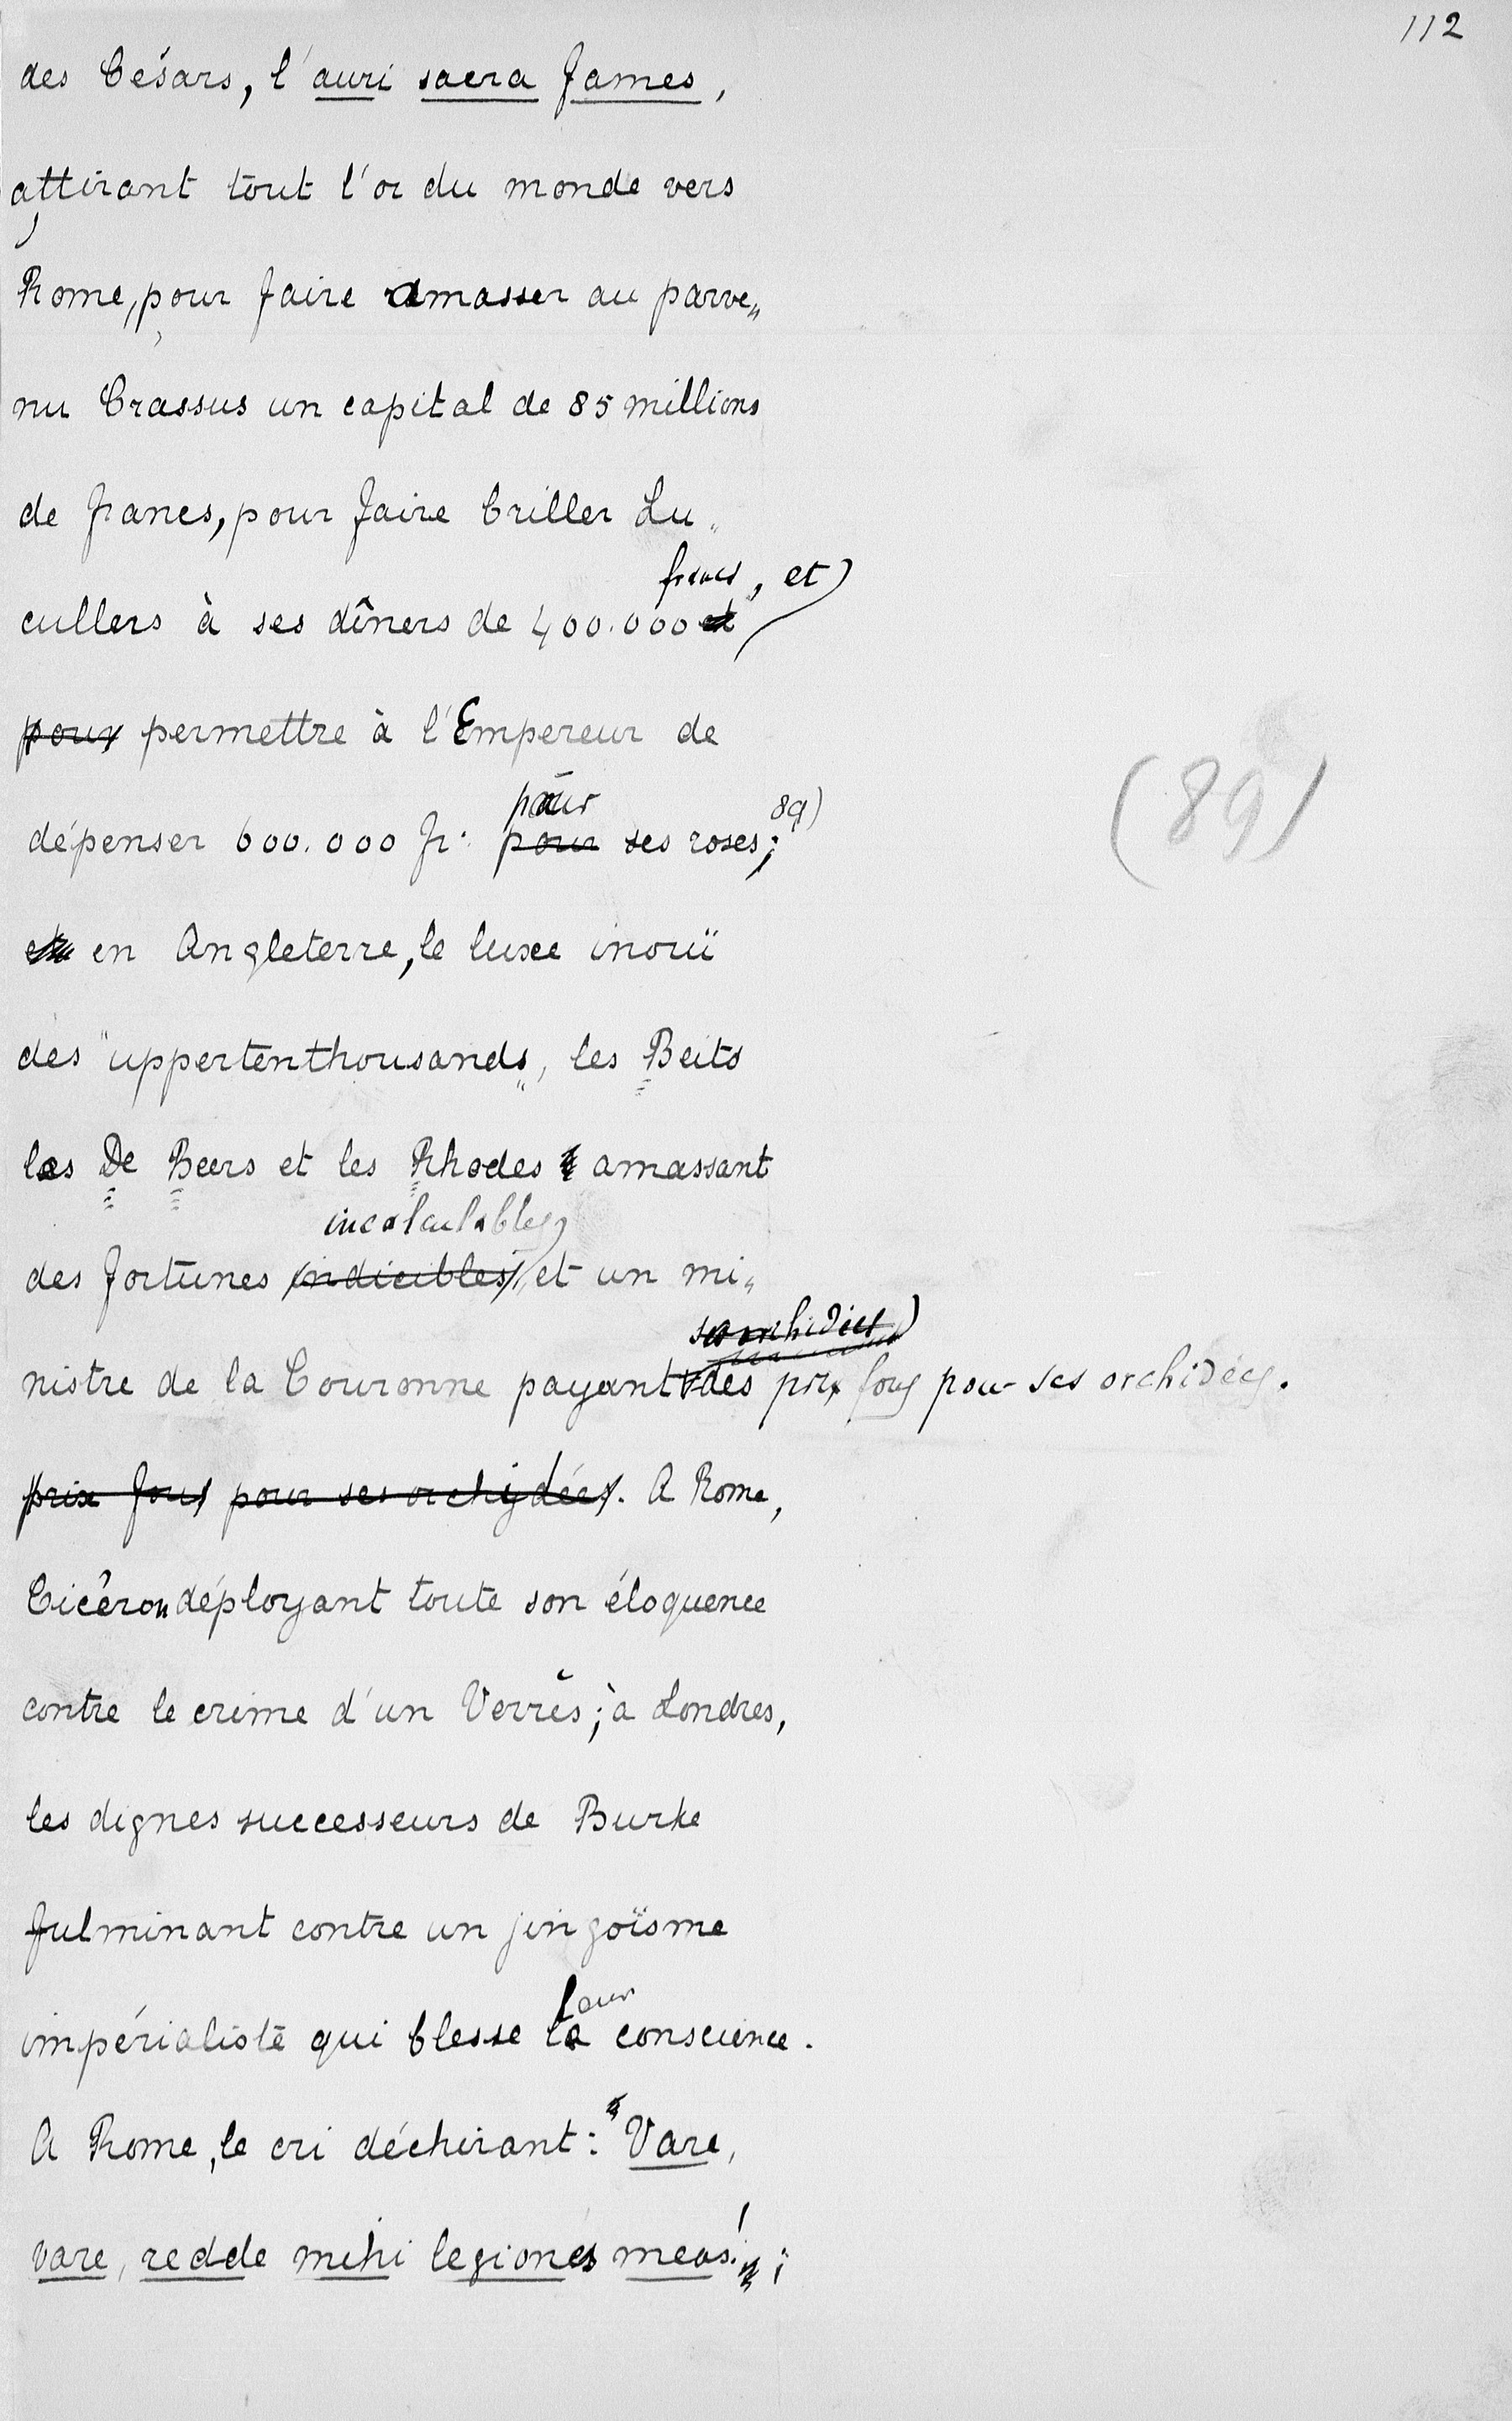 112
des Césars, l'auri sacra fames,
attirant tout l'or du monde vers
Rome, pour faire amasser au parve„
nu Crassus un capital de 85 millions
de francs, pour faire briller Lu„
francs, et)
cullers à ses dîners de 400.000 et
pour permettre à l'Empereur de
pour 89)
dépenser 600.000 fr: pour ses roses; (89)
en Angleterre, le luxe inouï
des "uppertenthousands„, les Beits
les De Beers et les Rhodes amassant
incalculables,
des fortunes indicibles, et un mi„
ses orchidées)
nistre de la Couronne payant des prix fous pour ses orchidées.
prix fous pour ses orchydées. A Rome,
Cicéron déployant toute son éloquence
contre le crime d'un Verrès; à Londres,
les dignes successeurs de Burke
fulminant contre un jingoïsme
leur
impérialiste qui blesse la conscience.
A Rome, le cri déchirant: Vare,
vare, redde mihi legiones meas!;